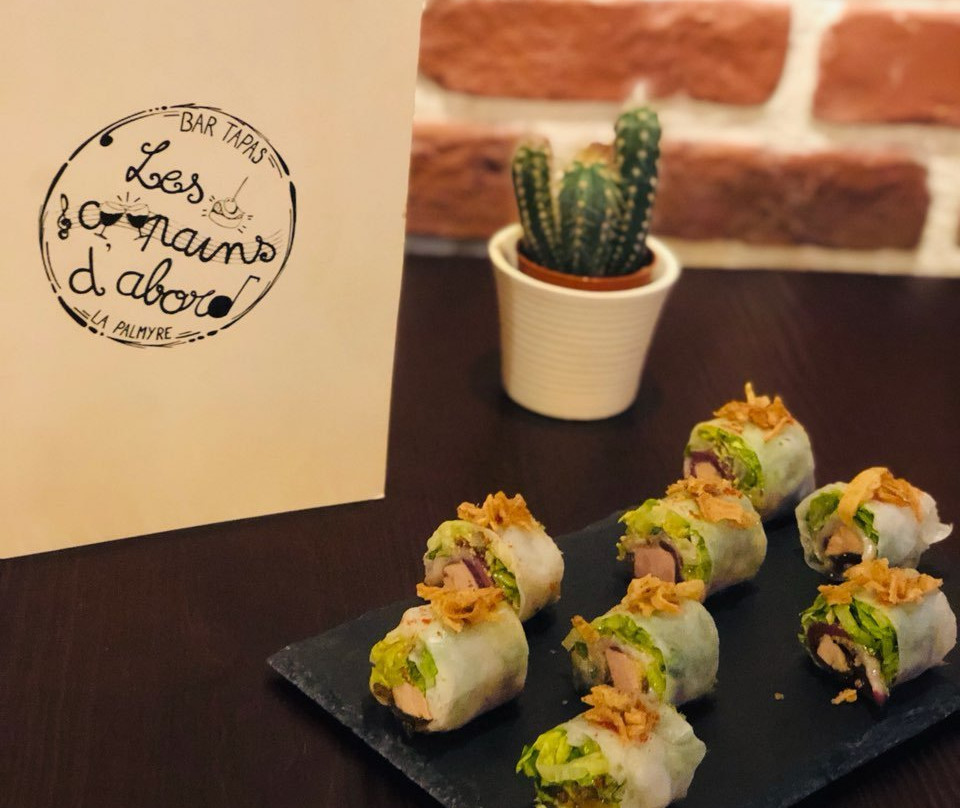 BAR TAPAS
Les
copains
d'abord
LA PALMYRE